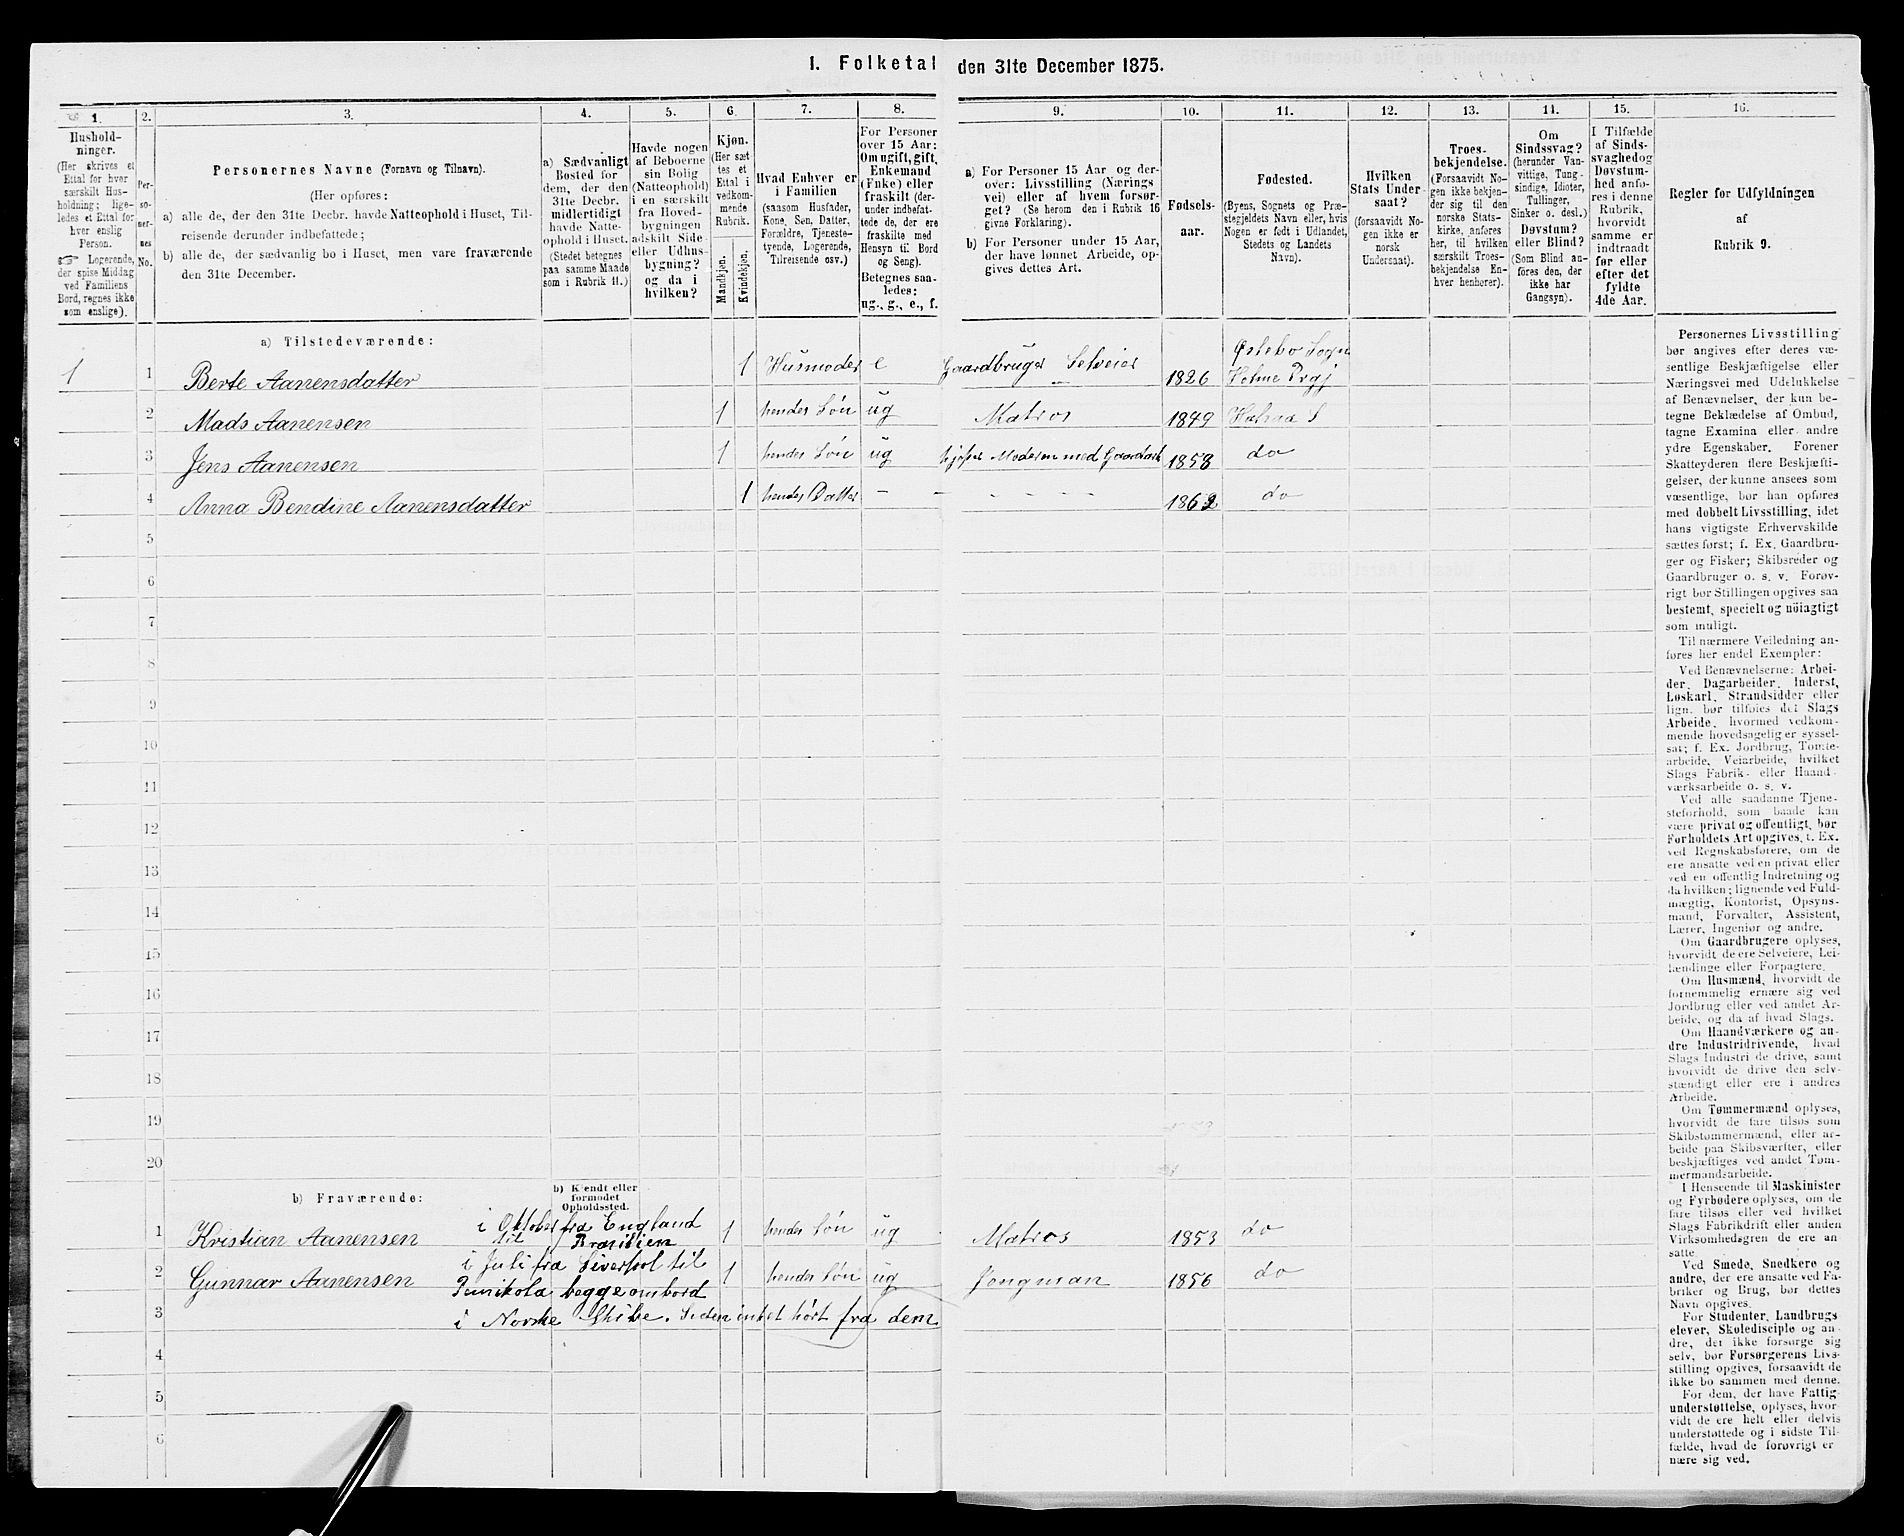 1. Folketal den 31te December 1875.
1.
Hushold-
ninger.
(Her skrives et
Ettal for hver
særskilt Hus-
holdning; lige-
ledes et Ettal for
hver enslig
Person.
☞ Logerende,
der spise Middag
ved Familiens
Bord, regnes ikke
som enslige).
2.
Per-
so-
ner-
nes
No.
3.
Personernes Navne (Fornavn og Tilnavn).
(Her opføres:
a) alle de, der den 31te Decbr. havde Natteophold i Huset, Til-
reisende derunder indbefattede;
b) alle de, der sædvanlig bo i Huset, men vare fraværende
den 31te December.
4.
a) Sædvanligt
Bosted for
dem, der den
31te Decbr.
midlertidigt
havde Natte-
ophold i Huset.
(Stedet betegnes
paa samme Maade
som i Rubrik 11.)
5.
Havde nogen
af Beboerne
sin Bolig
(Natteophold)
i en særskilt
fra Hoved-
bygningen
adskilt Side
eller Udhus-
bygning?
og da i
hvilken?
6.
Kjøn.
(Her sæt
tes et
Ettal i
vedkom-
mende
Rubrik.
Mandkjøn.
Kvindekjøn.
7.
Hvad Enhver er
i Familien
(saasom Husfader,
Kone, Søn, Datter,
Forældre, Tjeneste-
tyende, Logerende,
Tilreisende osv.)
8.
For Personer
over 15 Aar:
Om ugift, gift,
Enkemand
(Enke) eller
fraskilt (der-
under indbefat-
tede de, der ere
fraskilte med
Hensyn til Bord
og Seng).
Betegnes saa-
ledes:
ug., g., e., f.
9.
a) For Personer 15 Aar og der-
over: Livsstilling (Nærings
vei) eller af hvem forsør-
get? (Se herom den i Rubrik 16
givne Forklaring).
b) For Personer under 15 Aar,
der have lønnet Arbeide, op-
gives dettes Art.
10.
Fødsels-
aar.
11.
Fødested.
(Byens, Sognets og Præ-
stegjeldets Navn eller, hvis
Nogen er født i Udlandet,
Stedets og Landets
Navn).
12.
Hvilken
Stats Under-
saat?
(forsaavidt No-
gen ikke er
norsk
Undersaat).
13.
Troes-
bekjendelse.
(Forsaavidt No-
gen ikke bekjen-
der sig til den
norske Stats-
kirke, anføres
her, til hvilken
særskilt Troes-
bekjendelse En-
hver henhører).
14.
Om
Sindssvag?
(herunder Van-
vittige, Tung-
sindige, Idioter,
Tullinger,
Sinker o. desl.)
Døvstum?
eller Blind?
(Som Blind an-
føres den, der
ikke har
Gangsyn).
15.
I Tilfælde
af Sinds-
svaghed og
Døvstum-
hed anfø-
res i denne
Rubrik,
hvorvidt
samme er
indtraadt
før eller
efter det
fyldte
4de Aar.
16.
Regler for Udfyldningen
af
Rubrik 9.
a) Tilstedeværende:
1 1 Berte Aanensdatter 1 Husmoder e Gaardbruger Selveier 1826 Østebø Sogn
Holme Prgj
2 Mads Aanensen 1 hendes Søn ug Matros 1849 S
3 Jens Aanensen 1 hendes Søn ug Moderen med 1858 do
4 Anna Bendine Aanensdatter 1 hendes Datter - - - - - - 1862 do
5
6
7
8
9
10
11
12
13
14
15
16
17
18
19
20
b) Fraværende:
b) Kjendt eller
formodet
Opholdssted.
1 Kristian Aanensen i Oktober fra England
til Brasilien 1 hendes Søn ug Matros 1853 do
2 Gunnar Aanensen i Juli fra Liverpool til
begge ombord 1 hendes Søn ug Jungman 1856 do
3 i Norske Skibe. Siden intet hørt fra dem
4
5
6
Personernes Livsstilling
bør angives efter deres væ-
sentlige Beskjæftigelse eller
Næringsvei med Udelukkelse
af Benævnelser, der kun be-
tegne Beklædelse af Ombud,
tagne Examina eller andre
ydre Egenskaber. Forener
Skatteyderen flere Beskjæfti-
gelser, der kunne ansees som
væsentlige, bør han opføres
med dobbelt Livsstilling, idet
hans vigtigste Erhvervskilde
sættes først; f. Ex. Gaardbru-
ger og Fisker; Skibsreder og
Gaardbruger o. s. v. Forøv-
rigt bør Stillingen opgives saa
bestemt, specielt og nöiagtigt
som muligt.
Til nærmere Veiledning an-
føres her endel Exempler:
Ved Benævnelserne: Arbei-
der, Dagarbeider, Inderst,
Løskarl, Strandsidder eller
lign. bør tilføies det Slags
Arbeide, hvormed vedkom-
mende hovedsagelig er syssel-
sat; f. Ex. Jordbrug, Tomte-
arbeide, Veiarbeide, hvilket
Slags Fabrik- eller Haand-
værksarbeide o. s. v.
Ved alle saadanne Tjene-
steforhold, som baade kan
være privat og offentligt, bør
Forholdets Art opgives, t. Ex.
ved Regnskabsførere, om de
ere ansatte ved en privat eller
ved en offentlig Indretning og
da hvilken; lignende ved Fuld-
mægtig, Kontorist, Opsyns-
mand, Forvalter, Assistent,
Lærer, Ingeniør og andre.
Om Gaardbrugere oplyses,
hvorvidt de ere Selveiere, Lei-
lændinge eller Forpagtere.
Om Husmænd, hvorvidt de
fornemmelig ernære sig ved
Jordbrug eller ved andet Ar-
beide, og da af hvad Slags.
Om Haandværkere og an-
dre Industridrivende, hvad
Slags Industri de drive, samt
hvorvidt de drive den selv-
stændigt eller ere i andres
Arbeide.
Om Tømmermænd oplyses,
hvorvidt de fare tilsøs som
Skibstømmermænd, eller ar-
beide paa Skibsværfter, eller
beskjæftiges ved andet Tøm-
mermandsarbeide.
I Henseende til Maskinister
og Fyrbødere oplyses, om de
fare tilsøs eller ved hvilket
Slags Fabrikdrift eller anden
Virksomhedsgren de ere an-
satte.
Ved Smede, Snedkere og
andre, der ere ansatte ved Fa-
briker og Brug, bør dettes
Navn opgives.
For Studenter, Landbrugs
elever, Skoledisciple og an-
dre, der ikke forsørge sig
selv, bør Forsørgerens Livs-
stilling opgives, forsaavidt de
ikke bo sammen med denne.
For dem, der have Fattig-
understøttelse, oplyses, hvor-
vidt de ere helt eller delvis
understøttede og i sidste Til-
fælde, hvad de forøvrigt er
nære sig ved.